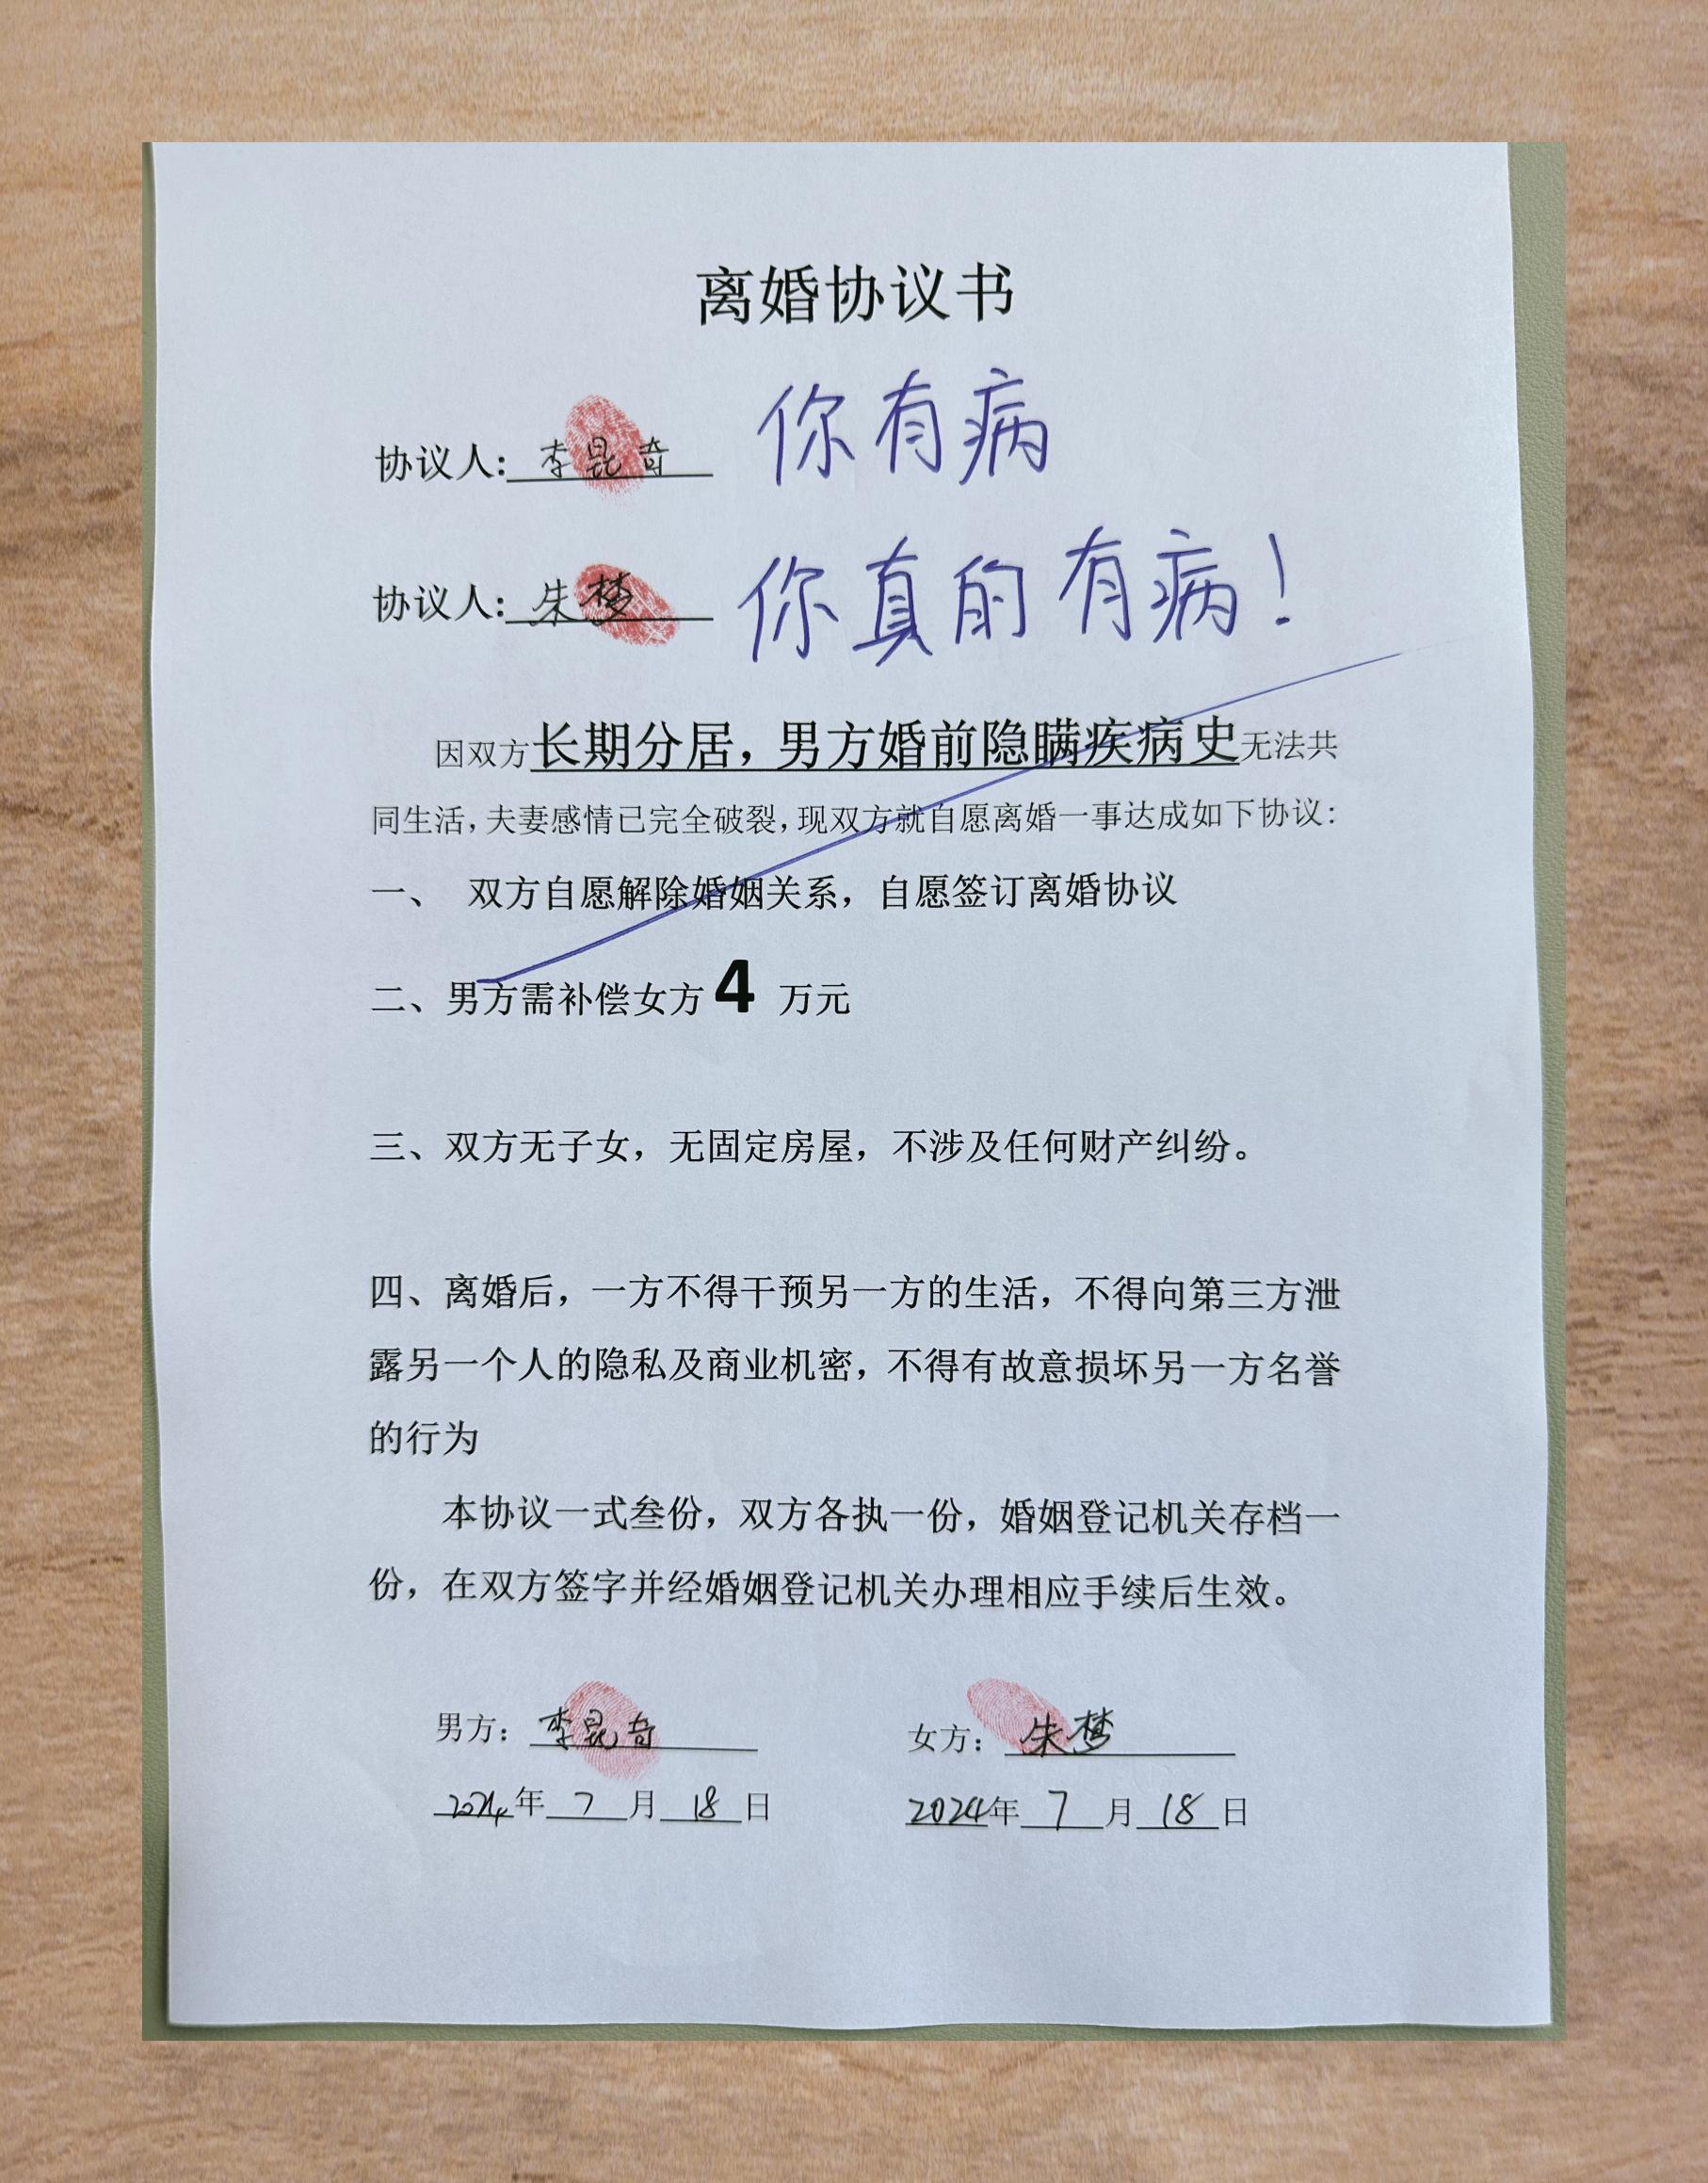 离婚协议书
协议人:李昆奇 你有病
协议人:朱梦 你真的有病!
因双方长期分居，男方婚前隐瞒疾病史无法共
同生活，夫妻感情已完全破裂，现双方就自愿离婚一事达成如下协议：
一、 双方自愿解除婚姻关系，自愿签订离婚协议
二、男方需补偿女方 4 万元
三、双方无子女，无固定房屋，不涉及任何财产纠纷。
四、离婚后，一方不得干预另一方的生活，不得向第三方泄
露另一个人的隐私及商业机密，不得有故意损坏另一方名誉
的行为
本协议一式叁份，双方各执一份，婚姻登记机关存档一
份，在双方签字并经婚姻登记机关办理相应手续后生效。
男方：李昆奇 女方：朱梦
2024年 7 月 18 日 2024年 7 月 18 日